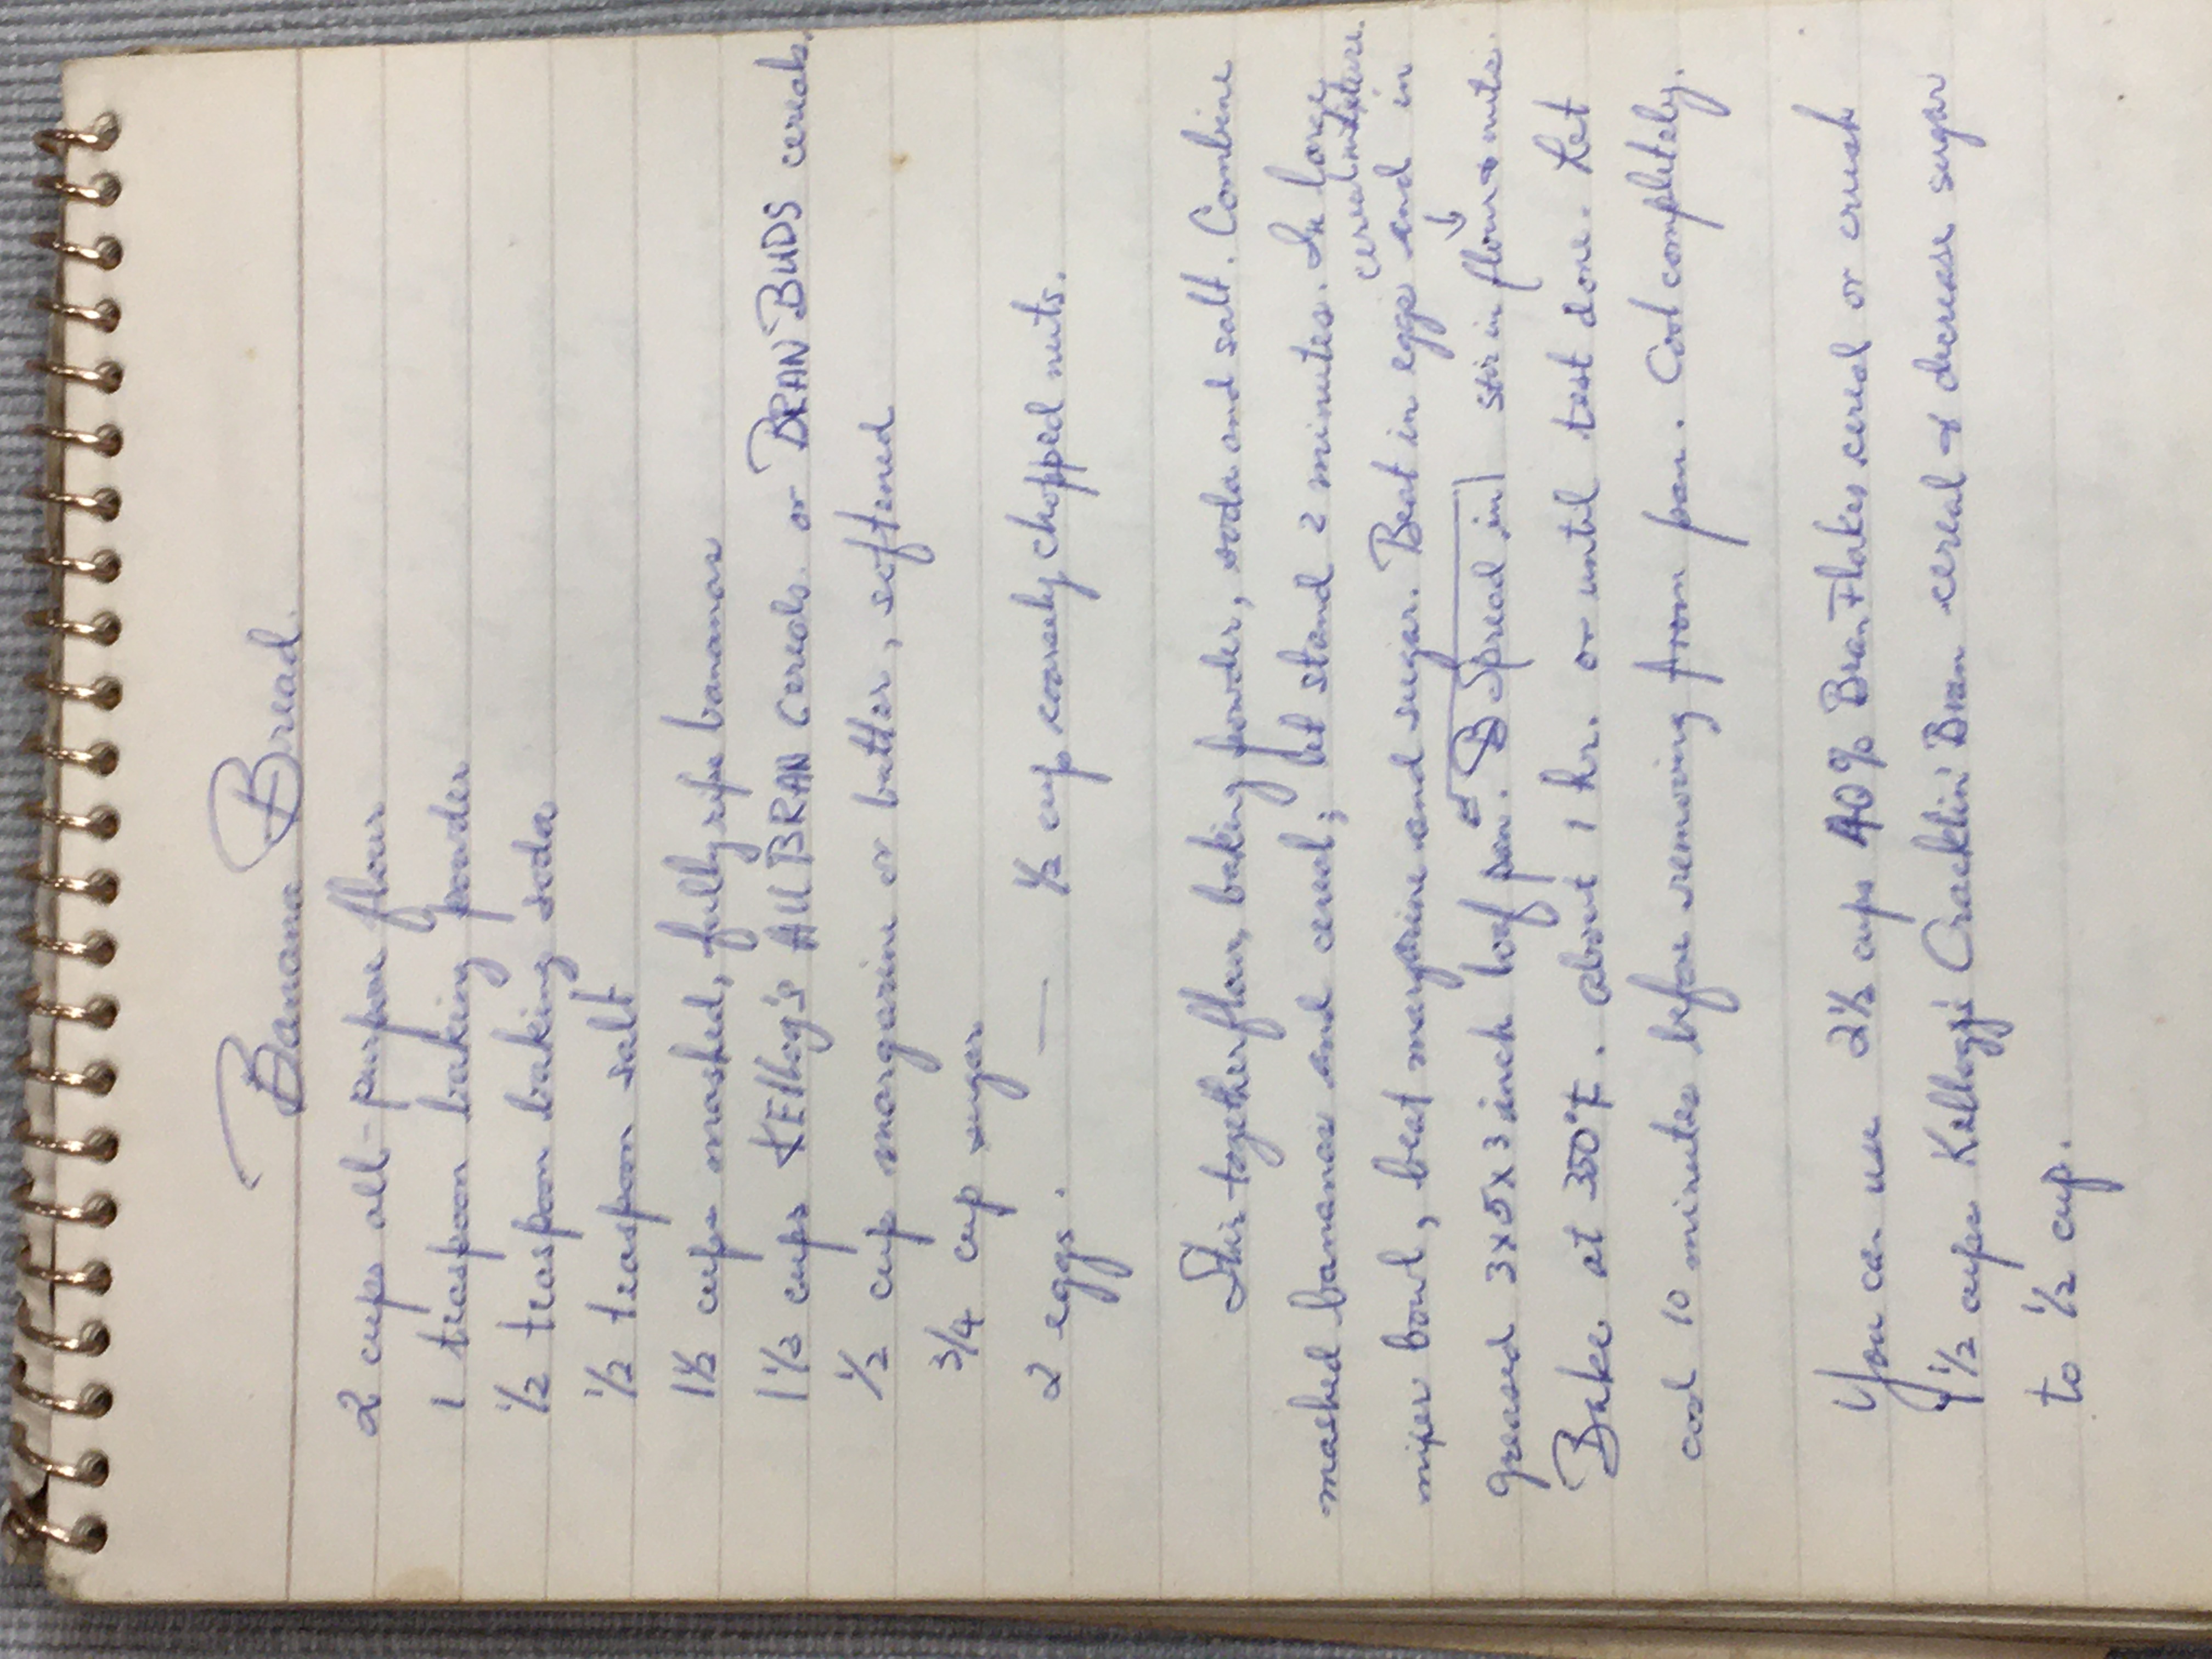 Banana Bread.
2 cups all-purpose flour
1 teaspoon baking powder
1/2 teaspoon baking soda
1/2 teaspoon salt
1 1/2 cups mashed, fully ripe bananas
1 1/2 cups KEllog's All BRAN Cereals. or BRAN BUDS cereals.
1/2 cup margarine or butter, softened
3/4 cup sugar
2 eggs. — 1/2 cup coarsely chopped nuts.
Stir together flour, baking powder, soda and salt. Combine
mashed bananas and cereal; let stand 2 minutes. In large
cereal mixture.
mixer bowl, beat margarine and sugar. Beat in eggs and in
greased 3x5x3 inch loaf pan. Spread in stir in flour & nuts.
Bake at 350°F. about 1 hr. or until test done. Let
cool 10 minutes before removing from pan. Cool completely.
You can use 2 1/2 cups 40% Bran Flakes cereal or crush
1 1/2 cups Kellogg's Cracklin' Bran cereal & decrease sugar
to 1/2 cup.